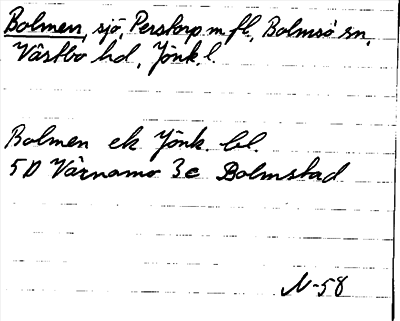 Bolmen, sjö, Perstorp m fl., Bolmsö sn,
Västbo hd, Jönk. l.
Bolmen ek Jönk. bl.
5D Värnamo 3c Bolmstad
N-58